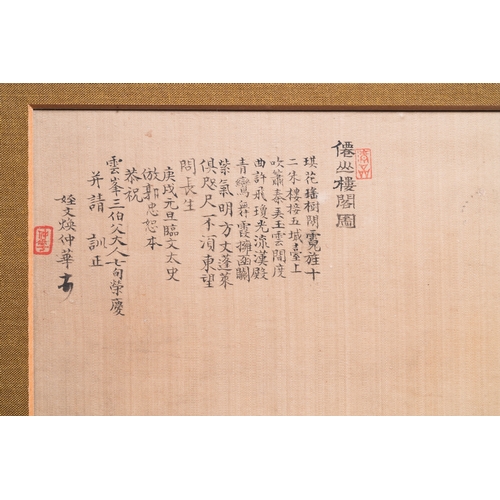 僊山樓閣圖
琪花瑤樹閉霓旌十
二朱樓接五城臺上
吹簫秦弄玉雲間度
曲許飛瓊光流漢殿
青鸞舞霞擁函關
紫氣明方丈蓬萊
俱咫尺不須東望
問長生
庚戌元旦臨文太史
倣郭忠恕本
恭祝
雲峯三伯父大人七旬榮慶
并請 訓正
姪文煥仲華